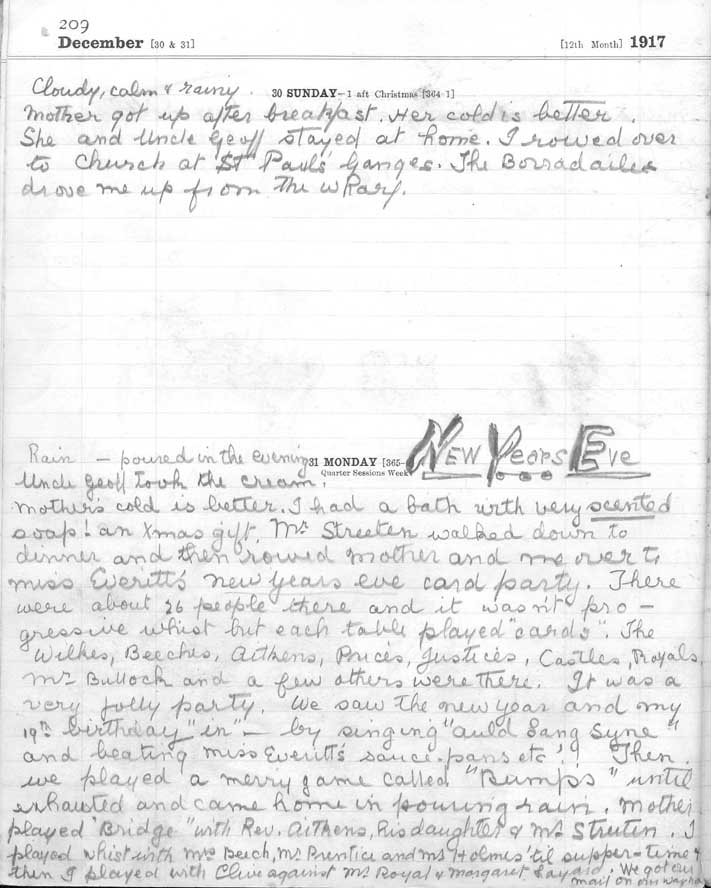 209
December [30 & 31] [12th Month] 1917
Cloudy, calm & rainy. 30 SUNDAY—1 aft Christmas [364-1]
Mother got up after breakfast. Her cold is better.
She and Uncle Geoff stayed at home. I rowed over
to Church at St Paul's Ganges. The Borradailes
drove me up from the wharf.
Rain — poured in the evening 31 MONDAY [365- New Years Eve
Quarter Sessions Week
Uncle Geoff took the cream.
Mother's cold is better. I had a bath with very scented
soap! an Xmas gift. Mr Streeten walked down to
dinner and then rowed Mother and me over to
Miss Everitt's new years eve card party. There
were about 26 people there and it wasn't pro-
gressive whist but each table played "cards". The
Wilkes, Beeches, Aitkens, Prices, Justices, Castles, Royals,
Mr Bullock and a few others were there. It was a
very jolly party. We saw the new year and my
19th birthday "in" — by singing "auld Lang Syne"
and beating Miss Everitt's sauce-pans etc!! Then
we played a merry game called "Bumps" until
exhausted and came home in pouring rain. Mother
played "Bridge" with Rev. Aitkens, his daughter & Mr Streeten. I
played whist with Mrs Beech, Mr Prentice and Holmes 'til supper-time &
then I played with Clive against Mr Royal & Margaret. We got our
mail on our way